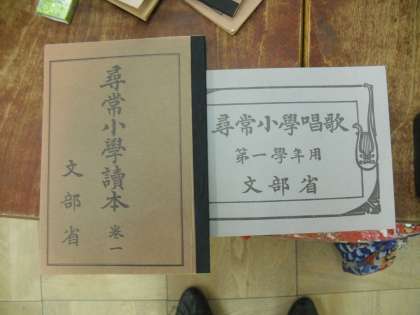 尋常小學讀本 卷一
文部省
尋常小學唱歌
第一學年用
文部省